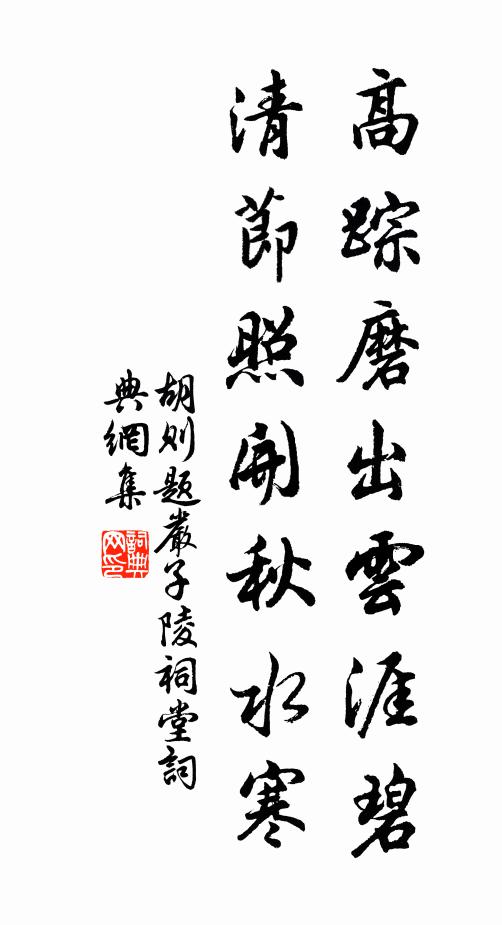 高踪磨出雲涯碧
清節照開秋水寒
胡則題嚴子陵祠堂詞
典網集
詞典
网印